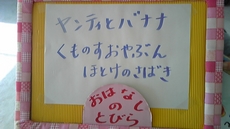 ヤンティとバナナ
くものすおやぶん
ほとけのさばき
おはなし
の
とびら